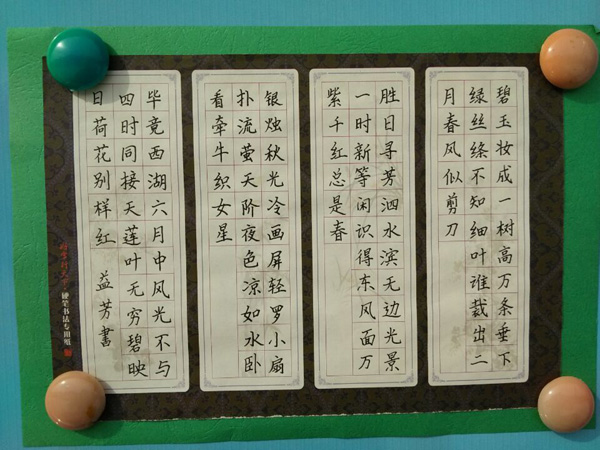 碧玉妆成一树高万条垂下
绿丝绦不知细叶谁裁出二
月春风似剪刀
胜日寻芳泗水滨无边光景
一时新等闲识得东风面万
紫千红总是春
银烛秋光冷画屏轻罗小扇
扑流萤天阶夜色凉如水卧
看牵牛织女星
毕竟西湖六月中风光不与
四时同接天莲叶无穷碧映
日荷花别样红 益芳書
好字行天下·硬笔书法专用纸